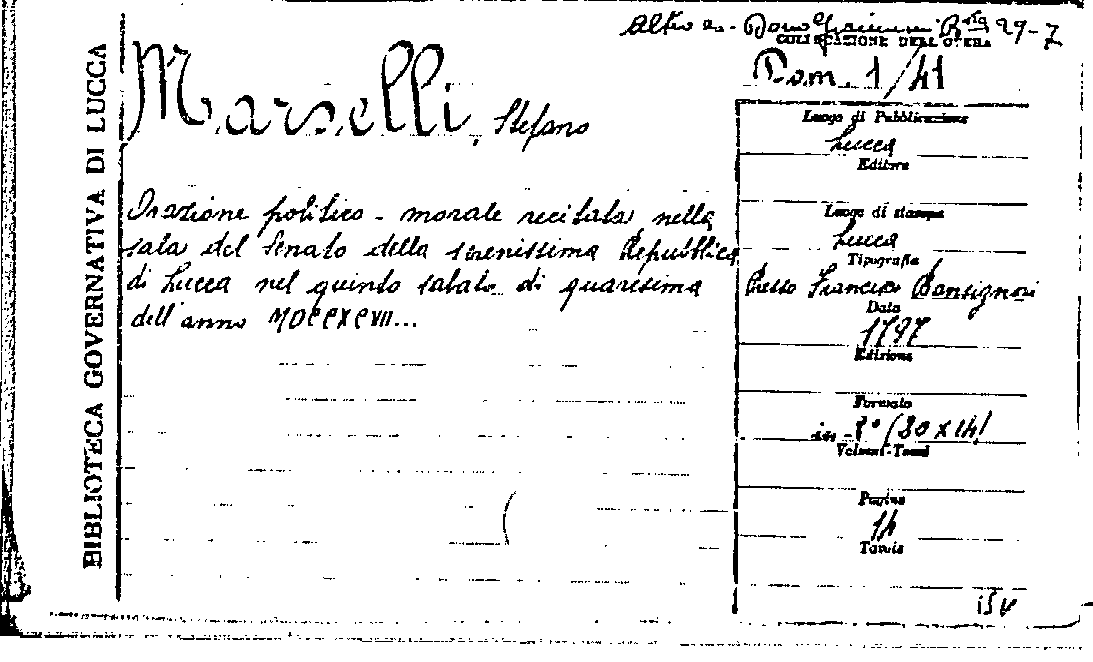 BIBLIOTECA GOVERNATIVA DI LUCCA
29-7
COLLOCAZIONE DELL'OPERA
Dom. 1/41
Marselli, Stefano
Orazione politico-morale recitata nella
sala del Senato della serenissima Repubblica
di Lucca nel quinto sabato di quaresima
dell'anno MDCCXCVII...
Luogo di Pubblicazione
Lucca
Editore
Luogo di stampa
Lucca
Tipografia
Presso Francesco Bonsignori
Data
1797
Edizione
Formato
in-8° (20 x 14)
Volumi-Tomi
Pagine
14
Tavole